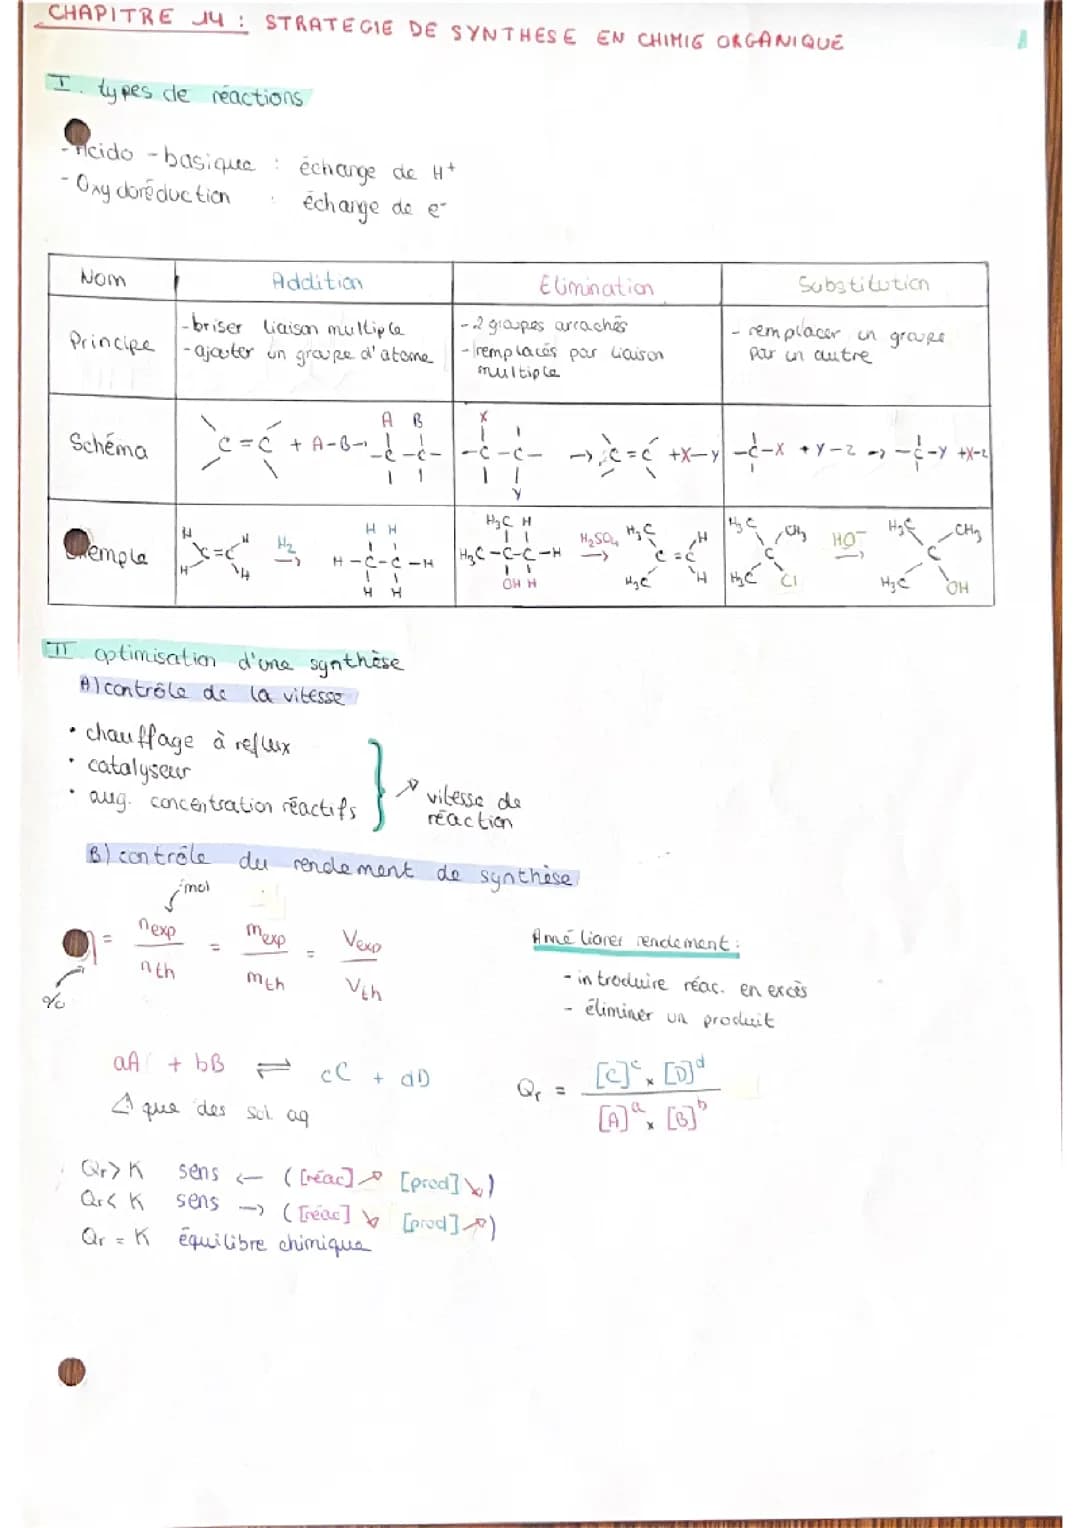 CHAPITRE 14 : STRATEGIE DE SYNTHESE EN CHIMIE ORGANIQUE
I. types de réactions
-Acido-basique : échange de H⁺
- Oxydoréduction : échange de e⁻
Nom Addition Elimination Substitution
Principe
-briser liaison multiple
-ajouter un groupe d'atome
-2 groupes arrachés
-remplacés par liaison
multiple
- remplacer un groupe
par un autre
Schéma
A B
C=C + A-B → -C-C-
X
-C-C- → C=C +X-Y
Y
-C-X + Y-Z → -C-Y +X-Z
Exemple
H H
C=C
H H
H₂
→
H H
H-C-C-H
H H
H₃C H
H₃C-C-C-H
OH H
H₂SO₄
→
H₃C H
C=C
H₃C H
H₃C CH₃
C
H₃C Cl
HO⁻
→
H₃C CH₃
C
H₃C OH
II optimisation d'une synthèse
A) contrôle de la vitesse
• chauffage à reflux
• catalyseur
• aug. concentration réactifs
↗ vitesse de
réaction
B) contrôle du rendement de synthèse
mol
η = nexp / nth = mexp / mth = Vexp / Vth
%
Améliorer rendement :
- introduire réac. en excès
- éliminer un produit
aA + bB ⇌ cC + dD
⚠ que des sol. aq
Qr = [C]ᶜ × [D]ᵈ / [A]ᵃ × [B]ᵇ
Qr > K sens ← ([réac] ↗ [prod] ↘)
Qr < K sens → ([réac] ↘ [prod] ↗)
Qr = K équilibre chimique